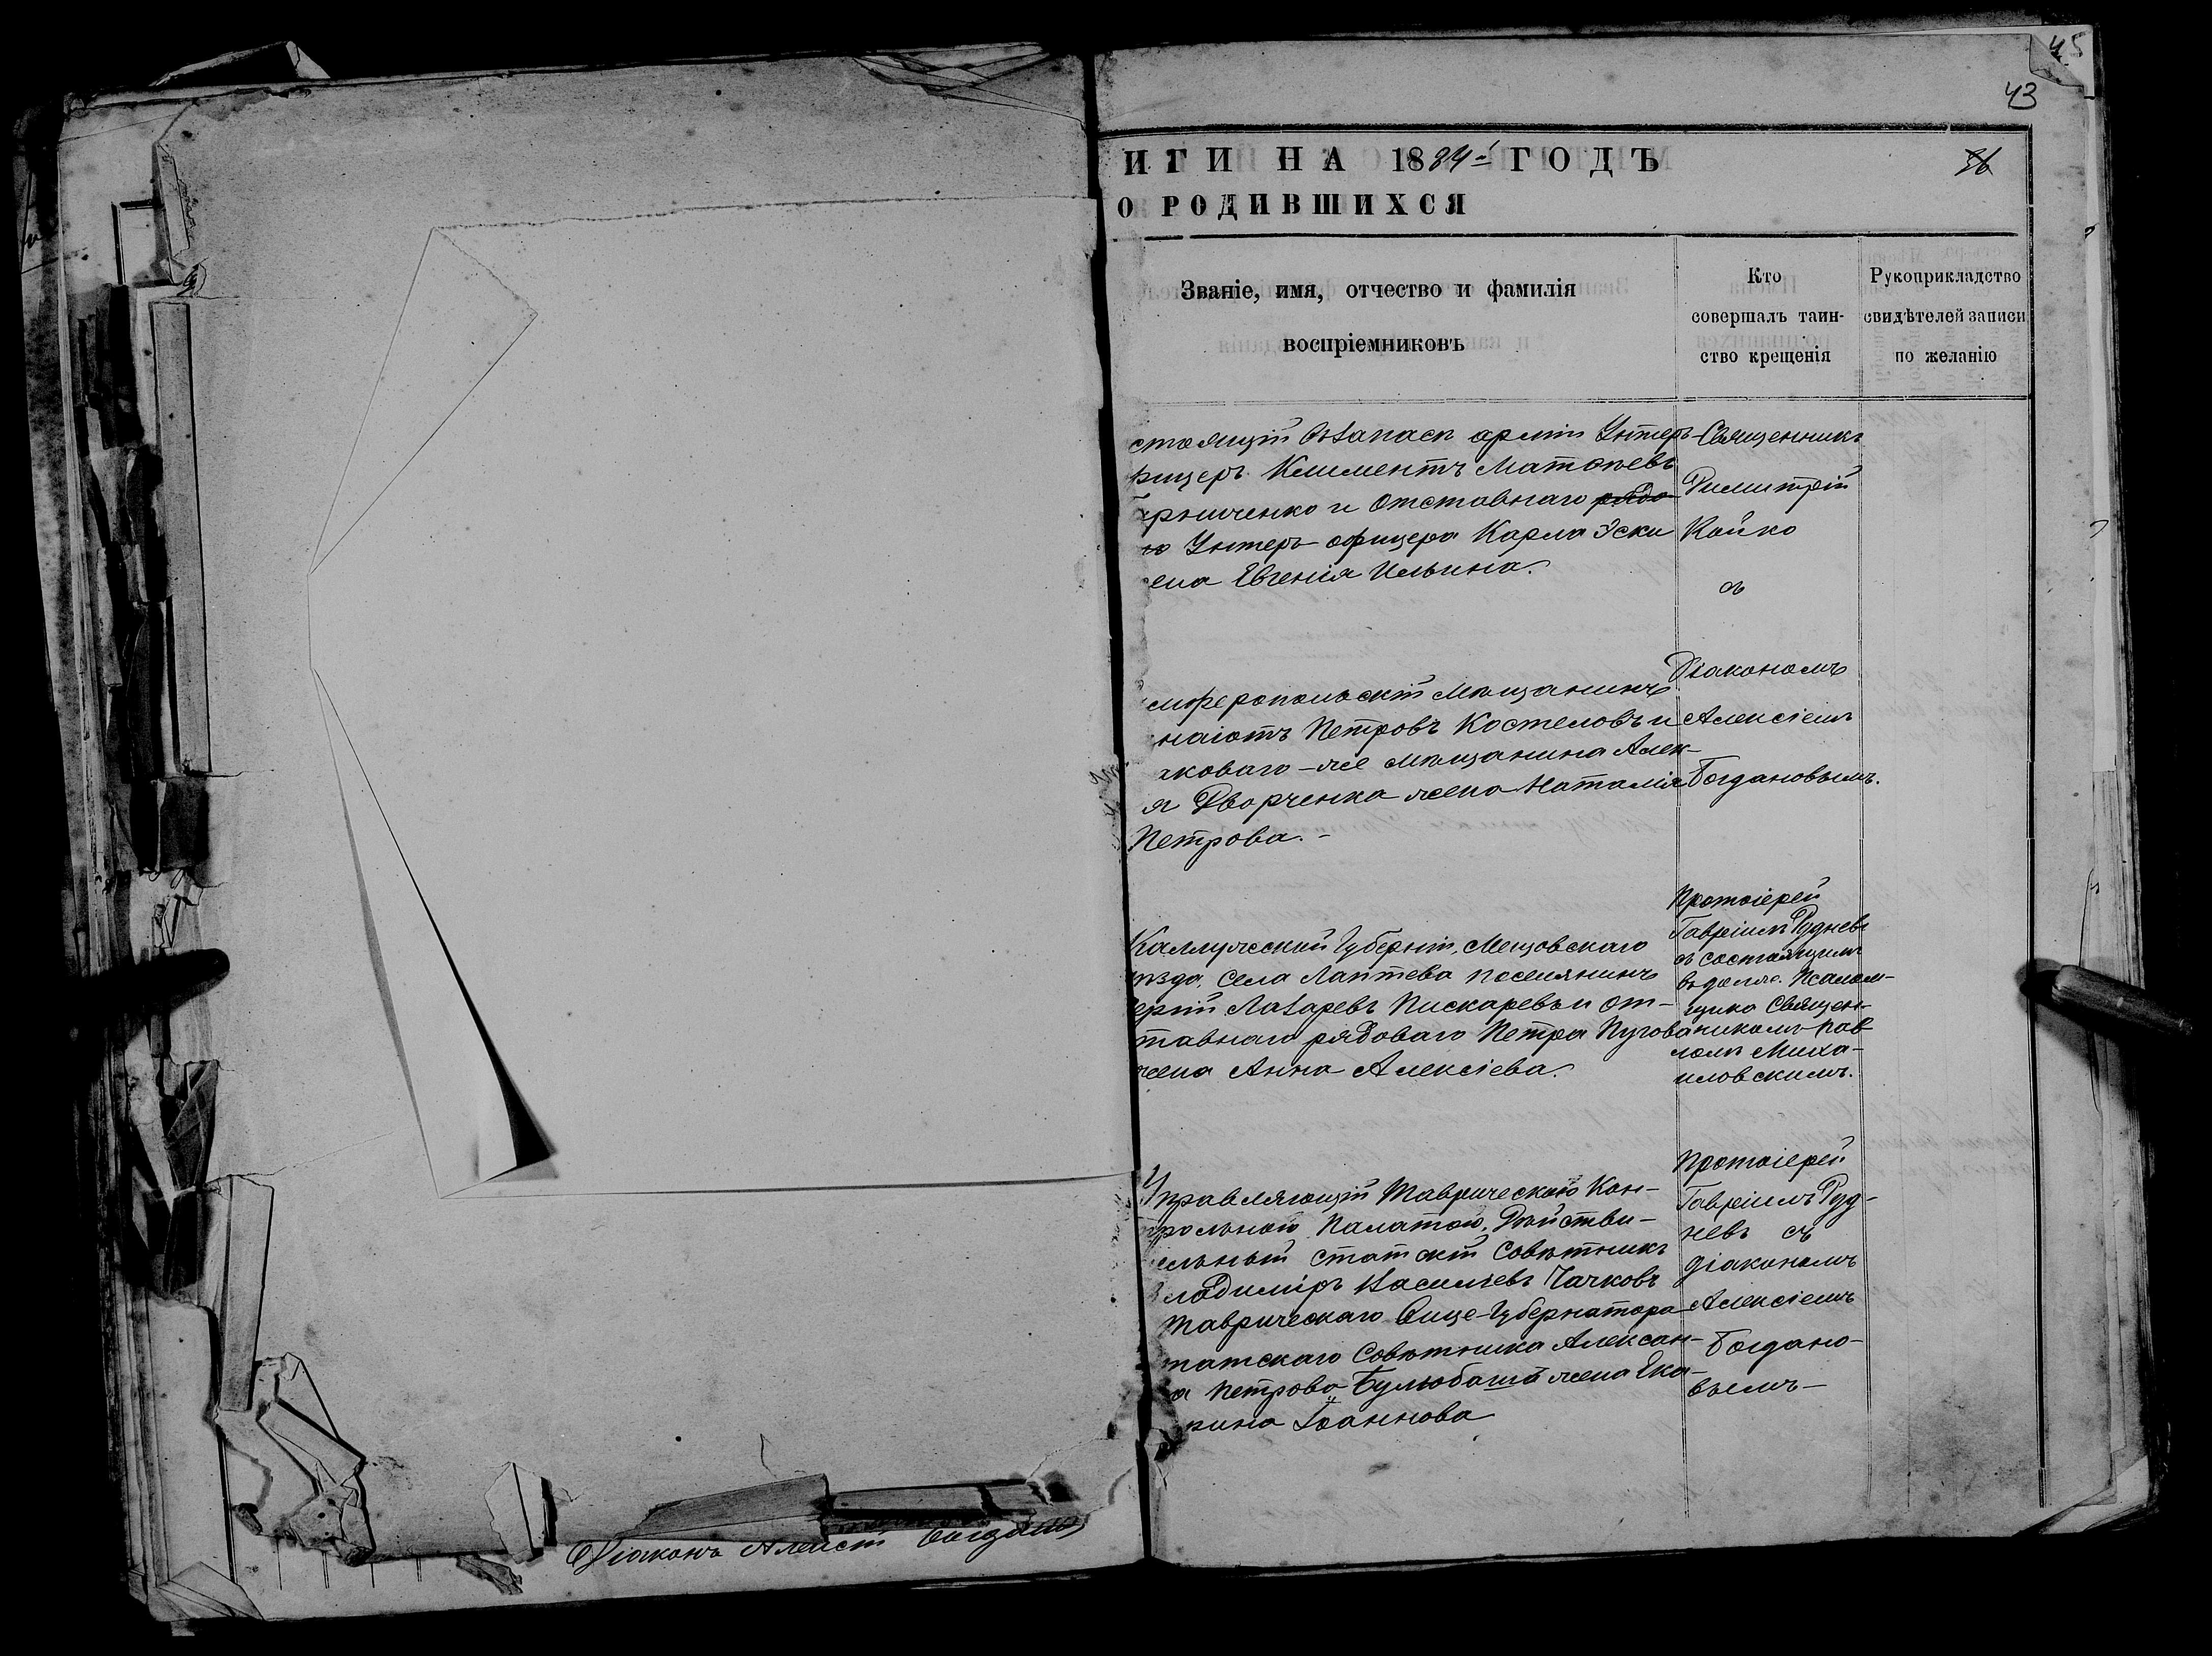 45
43
ИГИ НА 1884й ГОДЪ
36
О РОДИВШИХСЯ
Званіе, имя, отчество и фамилія
воспріемниковъ
Кто
совершалъ таин-
ство крещенія
Рукоприкладство
свидѣтелей записи
по желанію
стоящій въ запасѣ арміи Унтеръ-
фицеръ Климентъ Матѳѣевъ
и Отставнаго рядо
Унтеръ-офицера Карла Эски
ена Евгенія Ильина.
Священникъ
Димитрій
Койко
съ
Діакономъ
Алексіемъ
Богдановымъ.
имферопольскій мѣщанинъ
гнатъ Петровъ Костеловъ и
аковаго-же мѣщанина Алек-
я Дворченка жена Наталія
Петрова.-
Каллужской Губерніи, Мещовскаго
ѣзда, Села Лаптева поселянинъ
ергій Лазаревъ Пискаревъ и от-
тавнаго рядоваго Петра Пугова
жена Анна Алексіева.
Протоіерей
Гавріилъ Рудневъ
съ состоящимъ
въ долж. Псалом-
щика Священ-
никомъ Пав-
ломъ Миха-
иловскимъ.
Управляющій Таврическою Кон-
трольною Палатою, Дѣйстви-
ельный статскій совѣтникъ
Владиміръ Василіевъ Чачковъ
Таврическаго Вице-Губернатора
татскаго Совѣтника Алексан-
а Петрова Булюбаша жена Ека-
рина Іоаннова
Протоіерей
Гавріилъ Руд-
невъ съ
діакономъ
Алексіемъ
Богдано-
вымъ-
Діаконъ Алексій Богдано